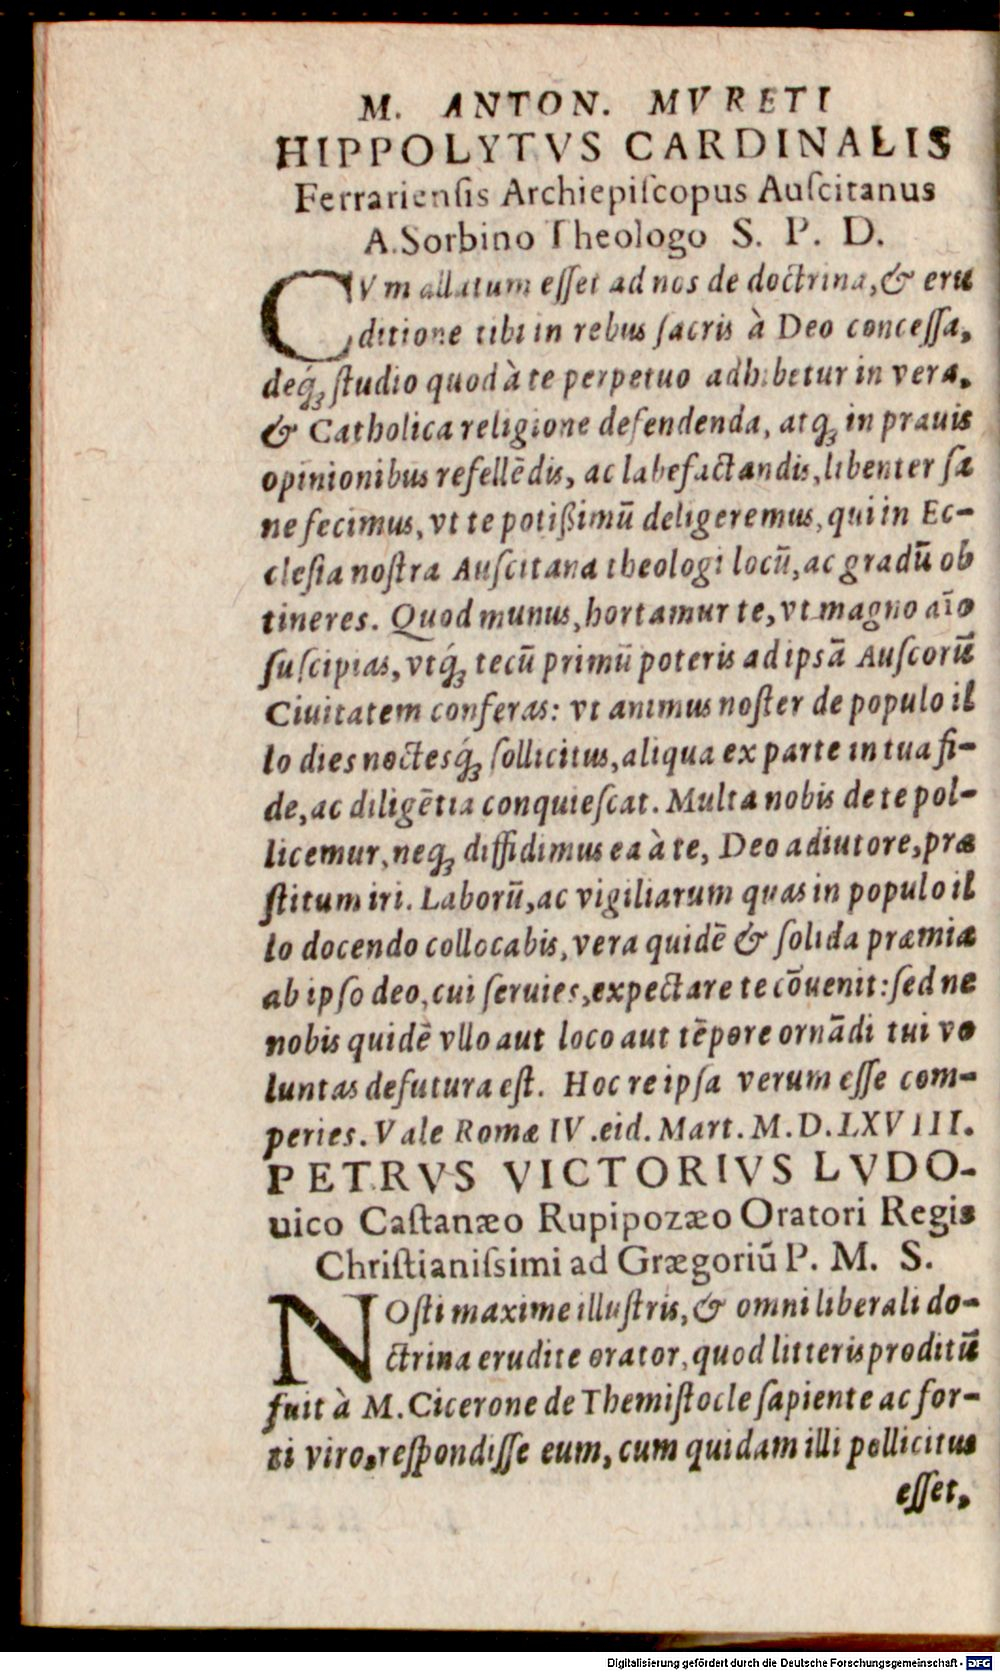 M. ANTON. MVRETI
HIPPOLYTVS CARDINALIS
Ferrariensis Archiepiſcopus Auſcitanus
A. Sorbino Theologo S. P. D.
CVm allatum eſſet ad nos de doctrina, & eru
ditione tibi in rebus ſacris à Deo conceſſa,
deq́ꝫ ſtudio quod à te perpetuo adhibetur in vera,
& Catholica religione defendenda, atqꝫ in prauis
opinionibus refellēdis, ac labefactandis, libenter ſa
ne fecimus, vt te potißimū deligeremus, qui in Ec-
cleſia noſtra Auſcitana theologi locū, ac gradū ob
tineres. Quod munus, hortamur te, vt magno aīo
ſuſcipias, vtq́ꝫ tecū primū poteris ad ipsā Auſcorū
Ciuitatem conferas: vt animus noſter de populo il
lo dies noctesq́ꝫ ſollicitus, aliqua ex parte in tua fi-
de, ac diligētia conquieſcat. Multa nobis de te pol-
licemur, neqꝫ diffidimus ea à te, Deo adiutore, præ
ſtitum iri. Laborū, ac vigiliarum quas in populo il
lo docendo collocabis, vera quidē & ſolida præmia
ab ipſo deo, cui ſeruies, expectare te cōuenit: ſed ne
nobis quidē vllo aut loco aut tēpore ornādi tui vo
luntas defutura eſt. Hoc re ipſa verum eſſe com-
peries. Vale Romæ IV. eid. Mart. M. D. LXVIII.
PETRVS VICTORIVS LVDO-
uico Caſtanæo Rupipozæo Oratori Regis
Chriſtianiſsimi ad Grægoriū P. M. S.
NOſti maxime illuſtris, & omni liberali do-
ctrina erudite orator, quod litteris proditū
fuit à M. Cicerone de Themiſtocle ſapiente ac for-
ti viro, reſpondiſſe eum, cum quidam illi pollicitus
eſſet,
Digitalisierung gefördert durch die Deutsche Forschungsgemeinschaft - DFG